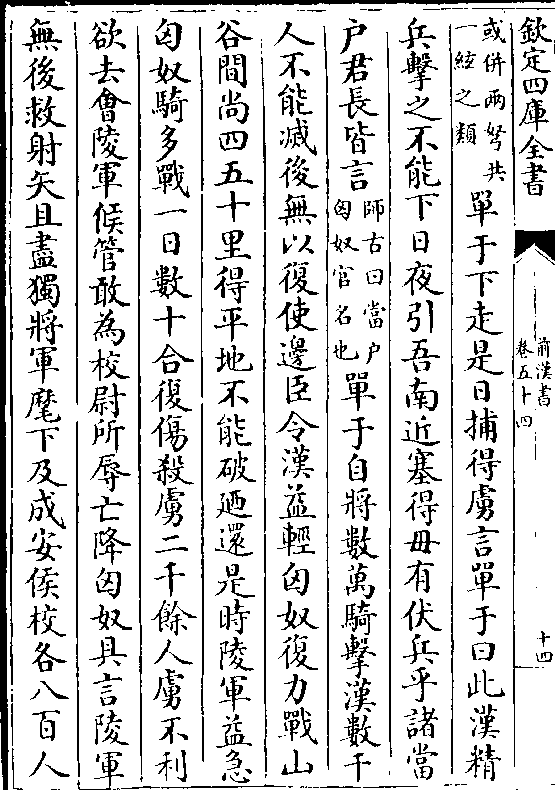 欽定四庫全書
前漢書
卷五十四
十四
或併兩弩共
一絃之類
單于下走是日捕得虜言單于曰此漢精
兵擊之不能下日夜引吾南近塞得毋有伏兵乎諸當
户君長皆言
師古曰當户
匈奴官名也
單于自將數萬騎擊漢數千
人不能滅後無以復使邊臣令漢益輕匈奴復力戰山
谷間尚四五十里得平地不能破廼還是時陵軍益急
匈奴騎多戰一日數十合復傷殺虜二千餘人虜不利
欲去會陵軍候管敢為校尉所辱亡降匈奴具言陵軍
無後救射矢且盡獨將軍麾下及成安侯校各八百人